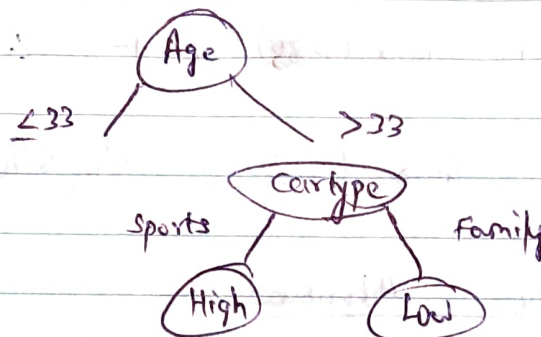 ∴
Age
≤33 >33
Cartype
Sports Family
High Low